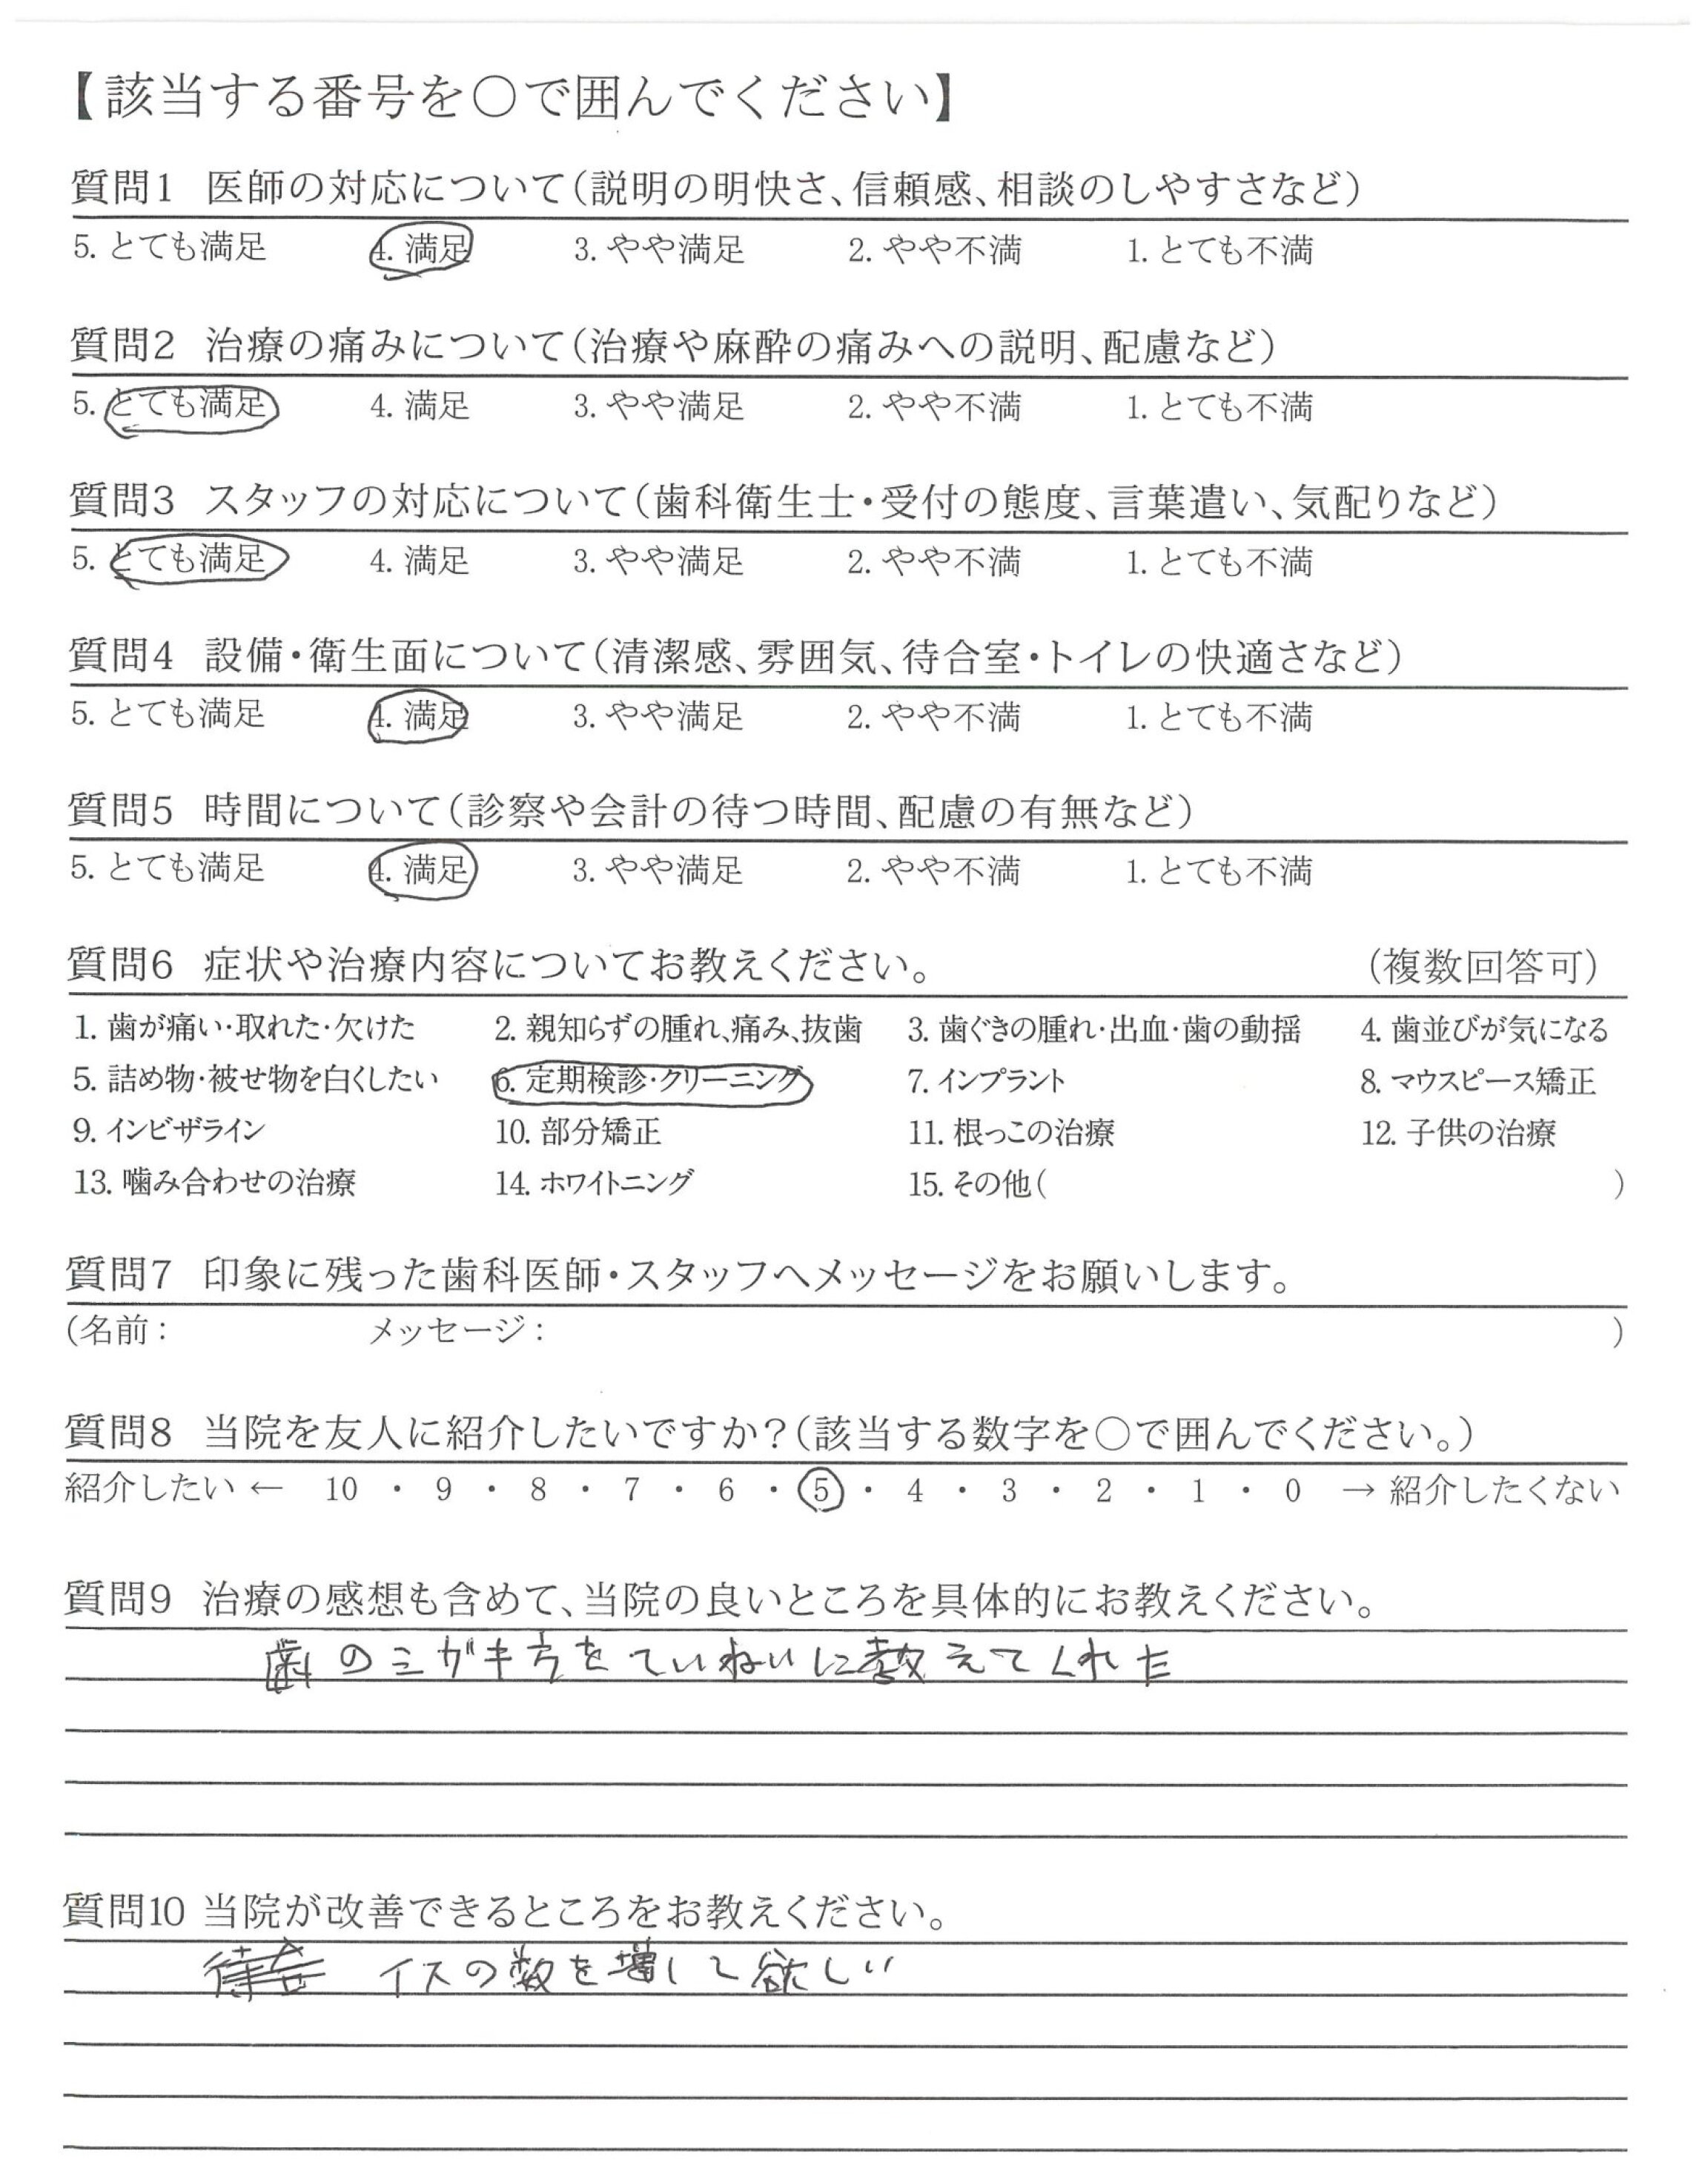 【該当する番号を〇で囲んでください】
質問1 医師の対応について(説明の明快さ、信頼感、相談のしやすさなど)
5. とても満足 4. 満足 3. やや満足 2. やや不満 1. とても不満
質問2 治療の痛みについて(治療や麻酔の痛みへの説明、配慮など)
5. とても満足 4. 満足 3. やや満足 2. やや不満 1. とても不満
質問3 スタッフの対応について(歯科衛生士・受付の態度、言葉遣い、気配りなど)
5. とても満足 4. 満足 3. やや満足 2. やや不満 1. とても不満
質問4 設備・衛生面について(清潔感、雰囲気、待合室・トイレの快適さなど)
5. とても満足 4. 満足 3. やや満足 2. やや不満 1. とても不満
質問5 時間について(診察や会計の待つ時間、配慮の有無など)
5. とても満足 4. 満足 3. やや満足 2. やや不満 1. とても不満
質問6 症状や治療内容についてお教えください。 (複数回答可)
1. 歯が痛い・取れた・欠けた 2. 親知らずの腫れ、痛み、抜歯 3. 歯ぐきの腫れ・出血・歯の動揺 4. 歯並びが気になる
5. 詰め物・被せ物を白くしたい 6. 定期検診・クリーニング 7. インプラント 8. マウスピース矯正
9. インビザライン 10. 部分矯正 11. 根っこの治療 12. 子供の治療
13. 噛み合わせの治療 14. ホワイトニング 15. その他( )
質問7 印象に残った歯科医師・スタッフへメッセージをお願いします。
(名前: メッセージ: )
質問8 当院を友人に紹介したいですか?(該当する数字を〇で囲んでください。)
紹介したい ← 10 ・ 9 ・ 8 ・ 7 ・ 6 ・ 5 ・ 4 ・ 3 ・ 2 ・ 1 ・ 0 → 紹介したくない
質問9 治療の感想も含めて、当院の良いところを具体的にお教えください。
歯のミガキ方をていねいに教えてくれた
質問10 当院が改善できるところをお教えください。
待合 イスの数を増して欲しい